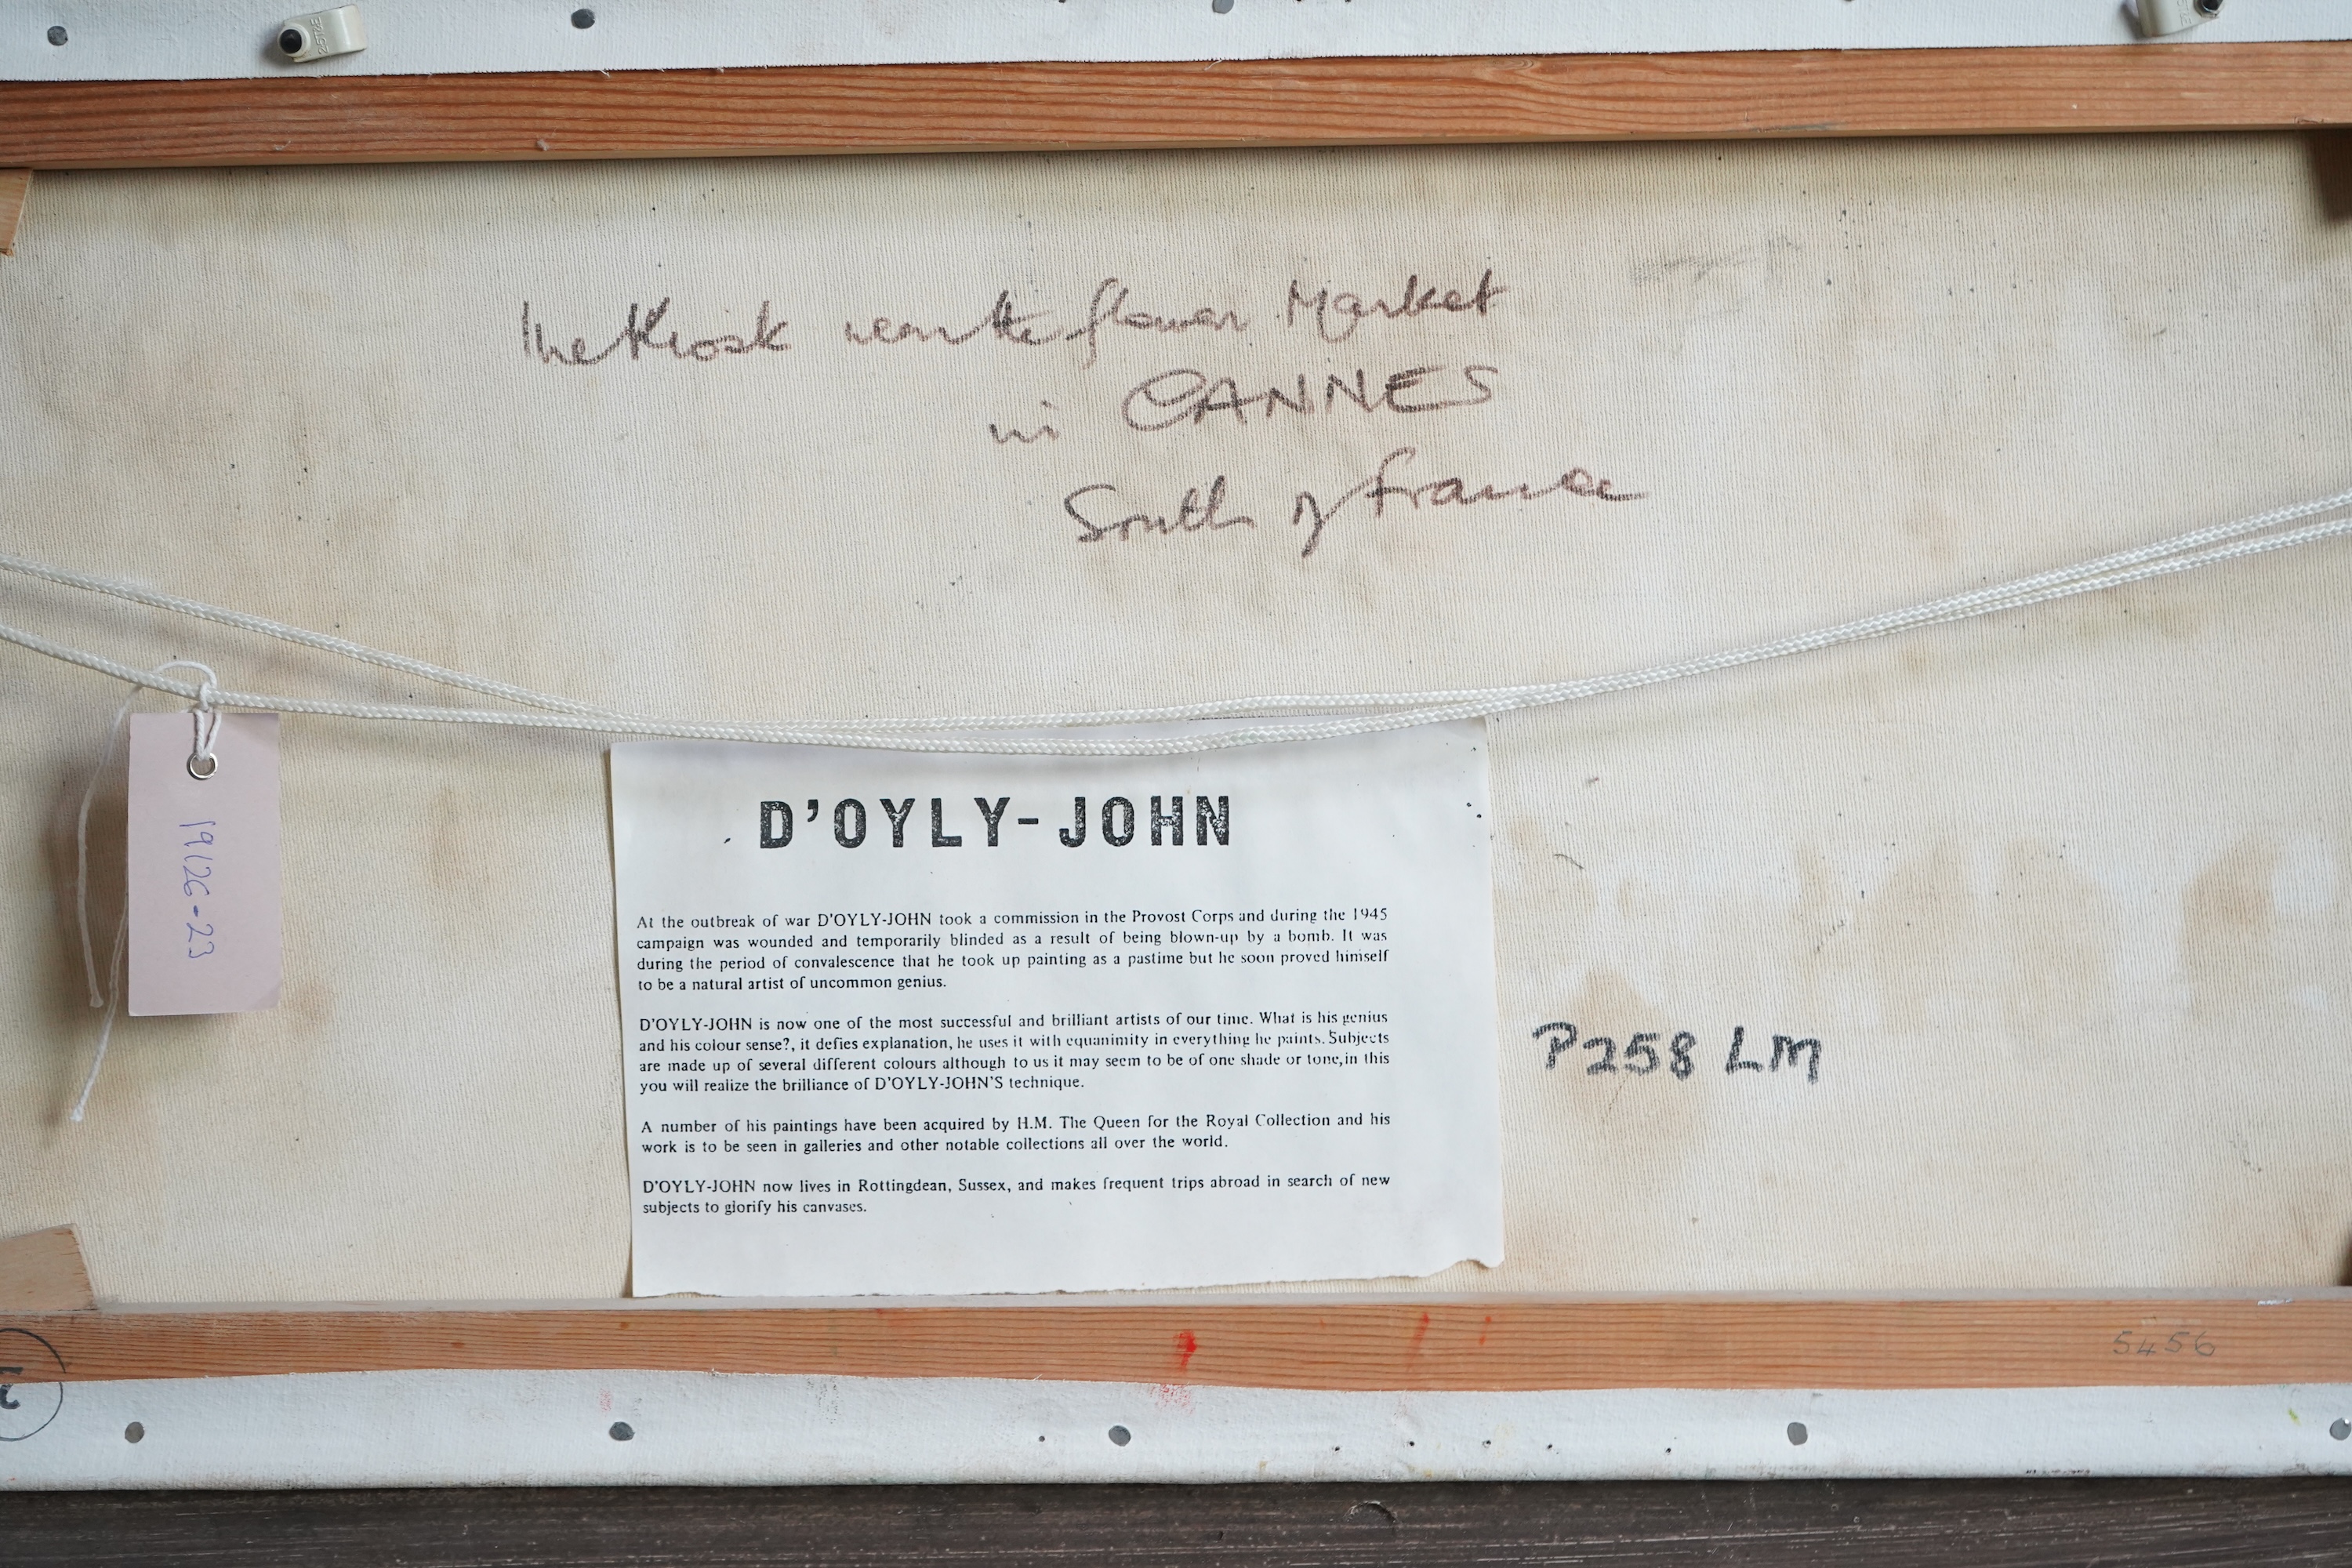 The Kiosk near the flower Market
in CANNES
South of France
19126-23
D'OYLY-JOHN
At the outbreak of war D'OYLY-JOHN took a commission in the Provost Corps and during the 1945
campaign was wounded and temporarily blinded as a result of being blown-up by a bomb. It was
during the period of convalescence that he took up painting as a pastime but he soon proved himself
to be a natural artist of uncommon genius.
D'OYLY-JOHN is now one of the most successful and brilliant artists of our time. What is his genius
and his colour sense?, it defies explanation, he uses it with equanimity in everything he paints. Subjects
are made up of several different colours although to us it may seem to be of one shade or tone,in this
you will realize the brilliance of D'OYLY-JOHN'S technique.
A number of his paintings have been acquired by H.M. The Queen for the Royal Collection and his
work is to be seen in galleries and other notable collections all over the world.
D'OYLY-JOHN now lives in Rottingdean, Sussex, and makes frequent trips abroad in search of new
subjects to glorify his canvases.
P258 LM
5456